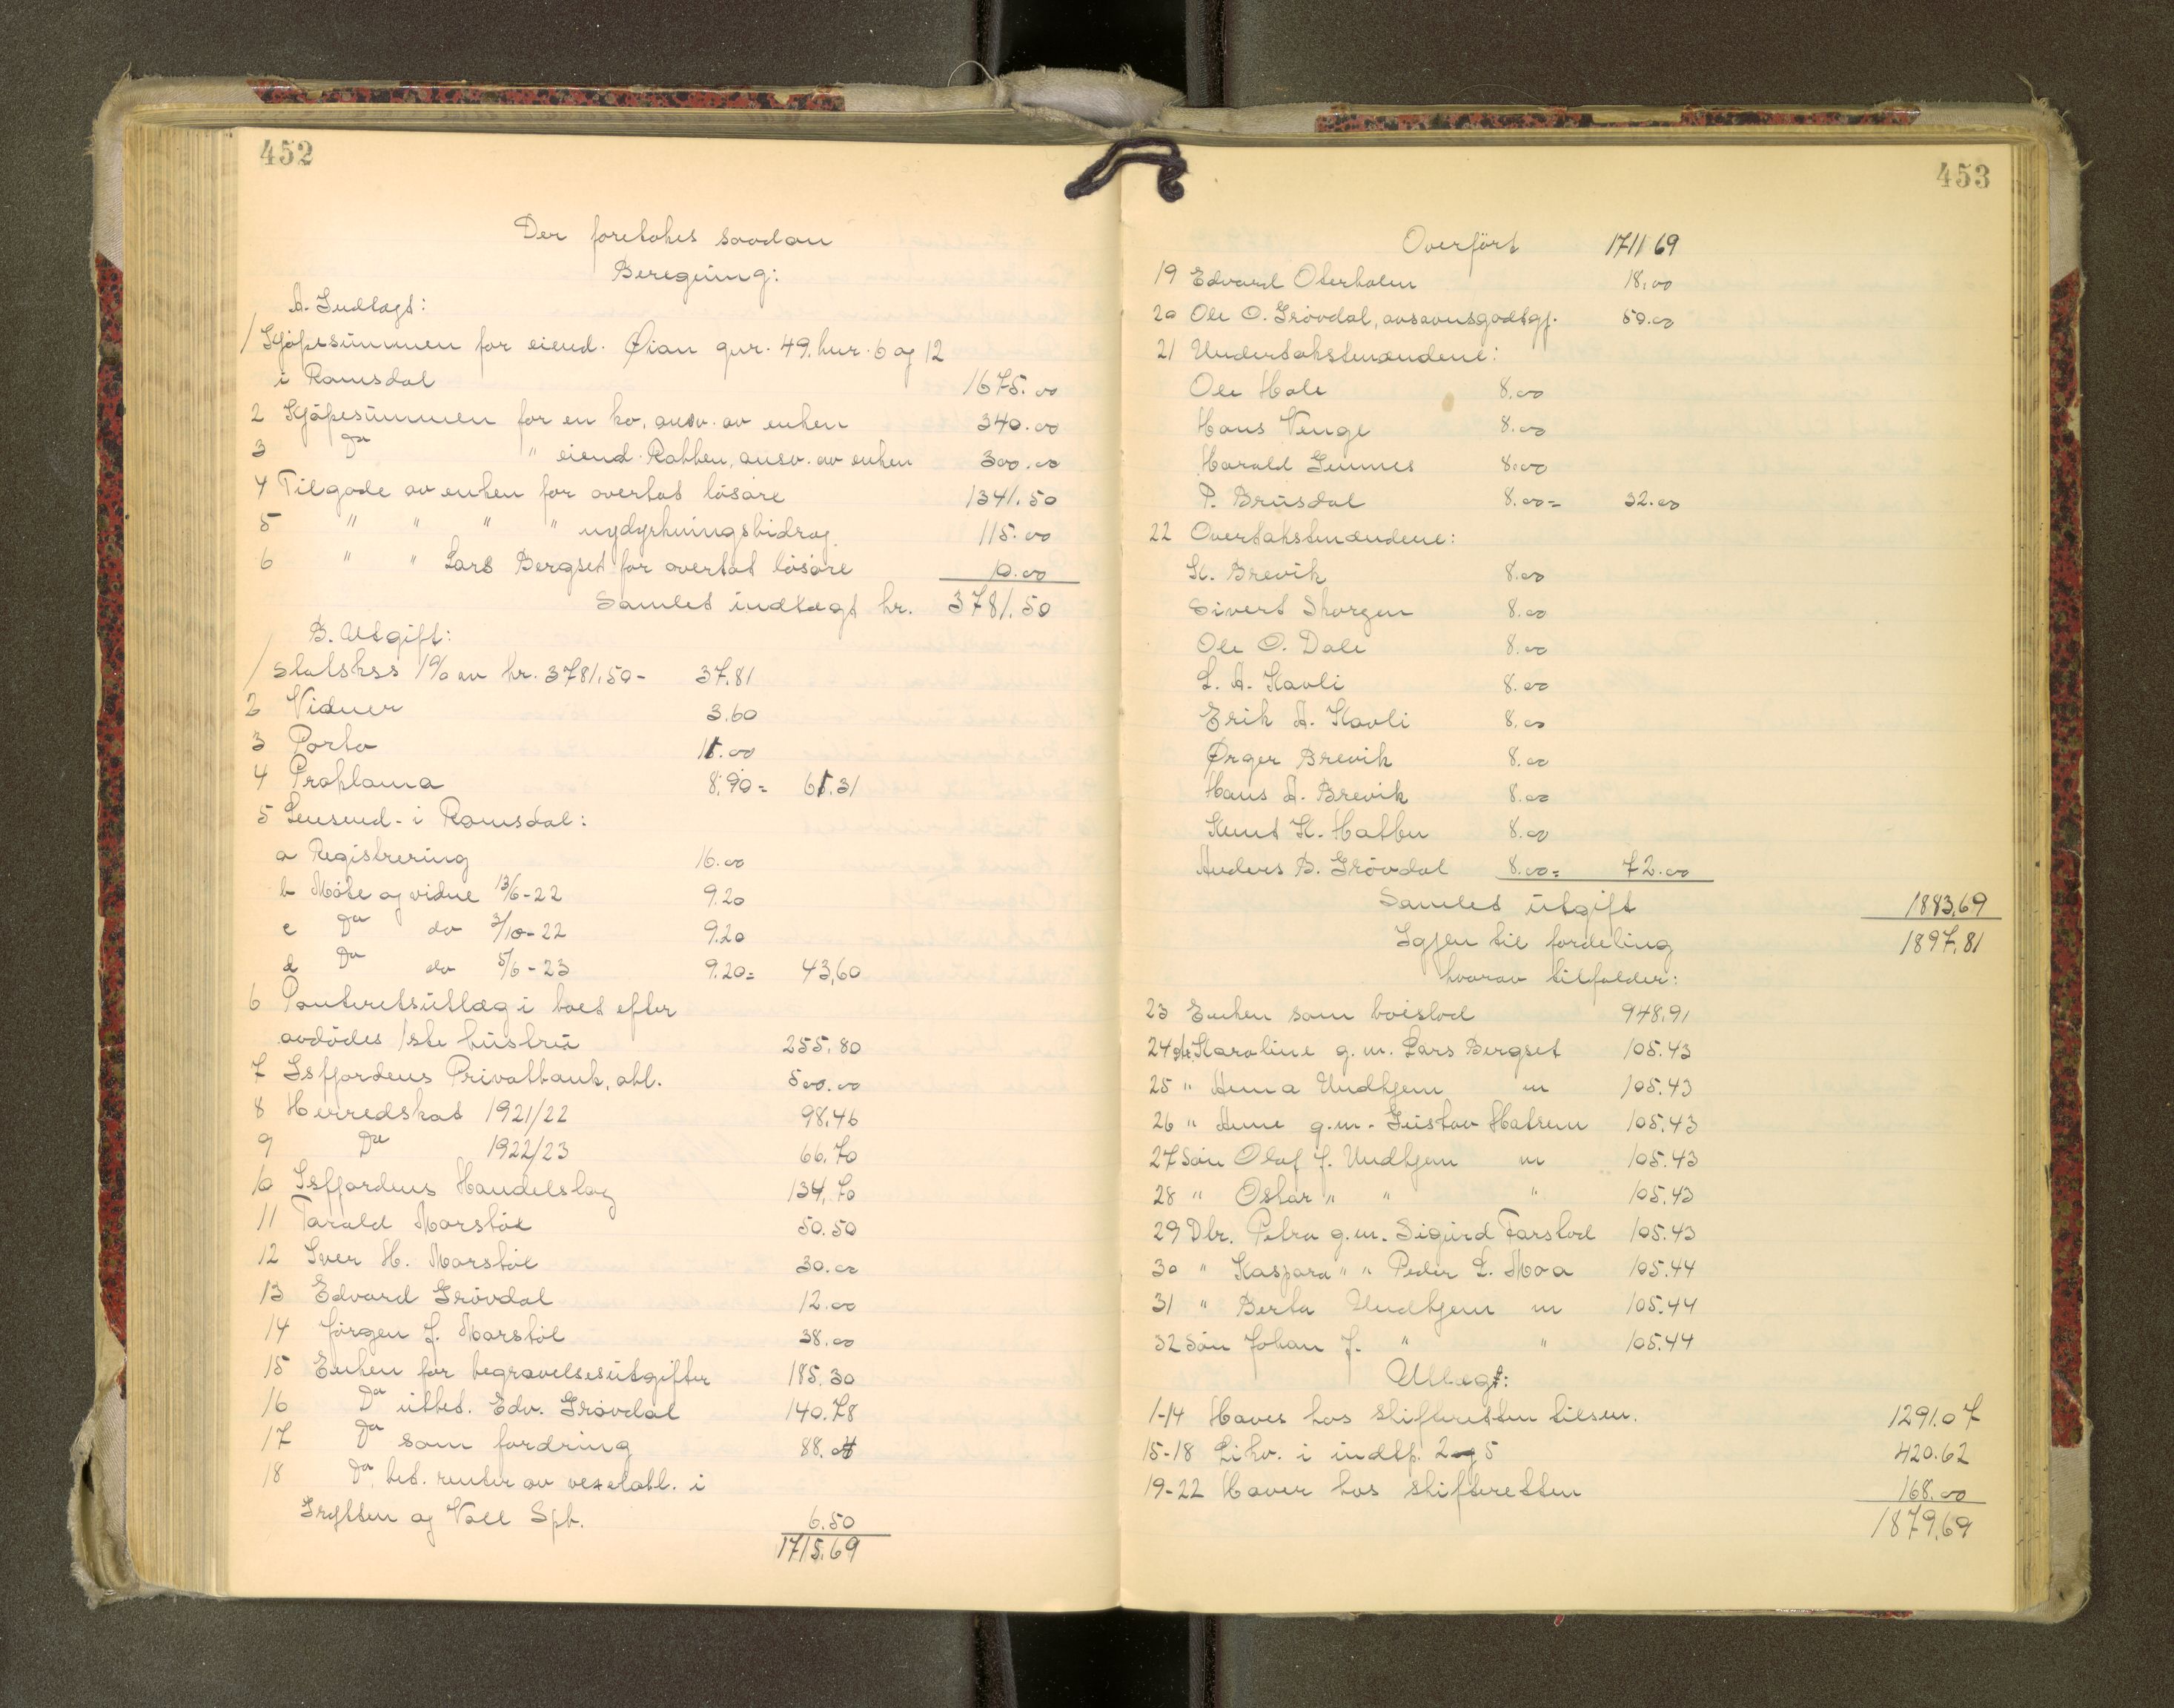 452
Der foretokes saadan
Beregning:
A. Indtægt:
1 Kjøpesummen for eiend. Øian gnr. 49, bnr. 6 og 12
i Romsdal 1675.00
2 Kjøpesummen for en ko, ansv. av enken 340.00
3 Do " eiend. Rabben, ansv. av enken 300.00
4 Tilgode av enken for overtat løsøre 1341.50
5 " " " " nydyrkningsbidrag 115.00
6 " " Lars Bergset for overtat løsøre 10.00
Samlet indtægt kr. 3781.50
B. Utgift:
1 Statskss 1% av kr. 3781.50 - 37.81
2 Vidner 3.60
3 Porto 11.00
4 Proklama 8.90 = 61.31
5 Lensmd. i Romsdal:
a Registrering 16.00
b Møte og vidne 13/6-22 9.20
c Do do 3/10-22 9.20
d Do do 5/6-23 9.20 = 43,60
6 Panteretsutlæg i boet efter
avdødes 1ste hustru 255.80
7 Isfjordens Privatbank, obl. 500.00
8 Herredskat 1921/22 98.46
9 Do 1922/23 66.70
10 Isfjordens Handelslag 134.70
11 Tarald Marstøl 50.50
12 Iver H. Marstøl 30.00
13 Edvard Grøvdal 12.00
14 Jørgen J. Marstøl 38.00
15 Enken for begravelsesutgifter 185.30
16 Do utbet. Edv. Grøvdal 140.78
17 Do som fordring 88.04
18 Do bet. renter av vexelobl. i
Grytten og Voll Spb. 6.50
1715.69
453
Overført 1711 69
19 Edvard Oterholm 18.00
20 Ole O. Grøvdal, avsavnsgodtgj. 50.00
21 Undertakstmændene:
Ole Hole 8.00
Hans Venge 8.00
Harald Gunnes 8.00
P. Brusdal 8.00 = 32.00
22 Overtakstmændene:
K. Brevik 8.00
Sivert Skorgen 8.00
Ole O. Dale 8.00
L. A. Kavli 8.00
Erik A. Kavli 8.00
Ørger Brevik 8.00
Hans A. Brevik 8.00
Knut K. Hatbu 8.00
Anders B. Grøvdal 8.00 = 72.00
Samlet utgift 1883.69
Igjen til fordeling 1897.81
hvorav tilfalder:
23 Enken som boeslod 948.91
24 dtr. Karoline g. m. Lars Bergset 105.43
25 " Anna Undhjem m 105.43
26 " Anne g. m. Gustav Hatrem 105.43
27 Søn Olaf J. Undhjem m 105.43
28 " Oskar " " " 105.43
29 Dtr. Petra g. m. Sigurd Farstad 105.43
30 " Kaspara " " Peder L. Moa 105.44
31 " Berta Undhjem m 105.44
32 Søn Johan J. " " 105.44
Utlægt:
1-14 Haves hos skifteretten tilsm. 1291.07
15-18 Likv. i indtp. 2 og 5 420.62
19-22 Haver hos skifteretten 168.00
1879.69